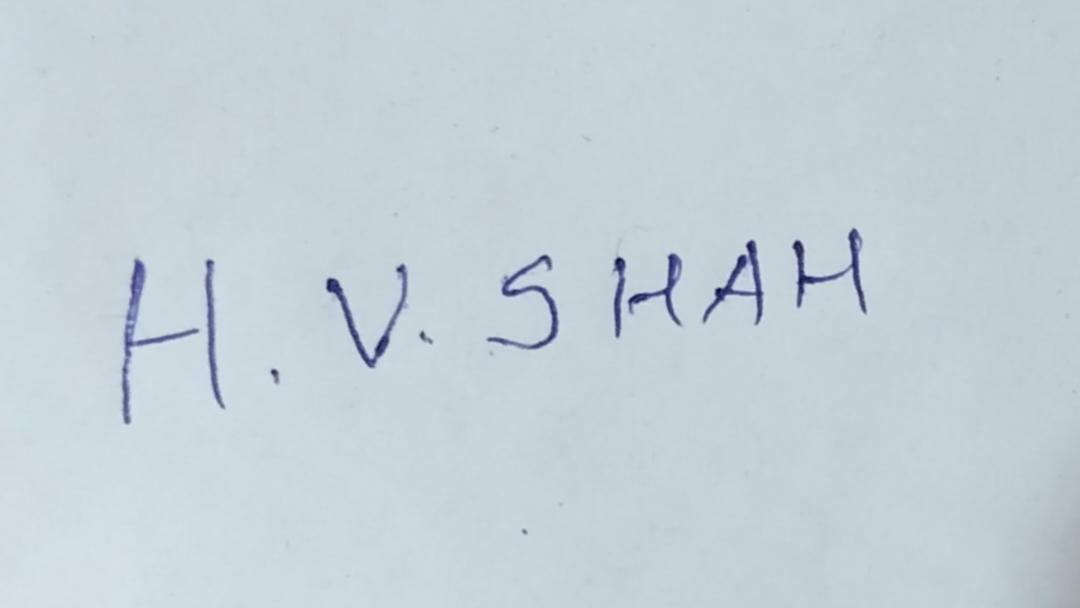 H. V. SHAH